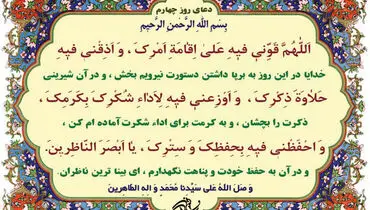 دعای روز چهارم
بِسْمِ اللَّهِ الرَّحْمَنِ الرَّحِیمِ
اَللّهُمَّ قَوِّنی فیهِ عَلیٰ اِقامَةِ اَمْرِکَ، وَ اَذِقْنی فیهِ
خدایا در این روز به برپا داشتن دستورت نیرویم بخش، و در آن شیرینی
حَلاوَةَ ذِکْرِکَ، وَ اَوْزِعْنی فیهِ لِاَداءِ شُکْرِکَ بِکَرَمِکَ،
ذکرت را بچشان، و به کرمت برای اداء شکرت آماده ام کن،
وَ احْفَظْنی فیهِ بِحِفْظِکَ وَ سِتْرِکَ، یا اَبْصَرَ النّاظِرینَ.
و در آن به حفظ خودت و پناهت نگهدارم، ای بینا ترین ناظران.
وَ صَلَّ اللهُ عَلی سَیِّدِنا مُحَمَّدٍ وَ الِهِ الطّاهِرینَ